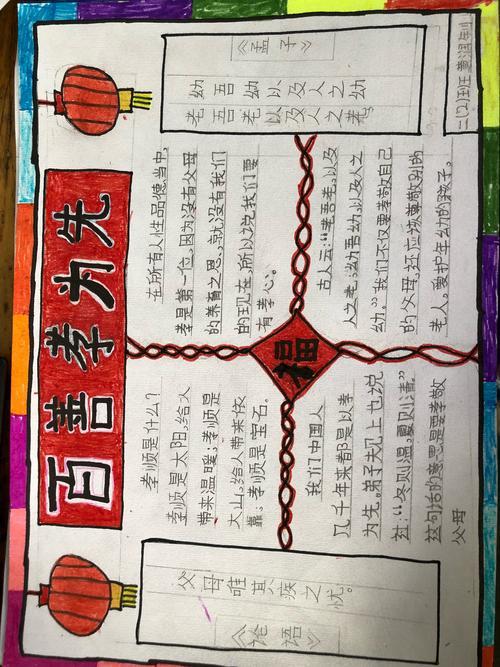 百善孝为先
《论语》
父母唯其疾之忧。
孝顺是什么?
孝顺是太阳,给人
带来温暖;孝顺是
大山,给人带来依
靠;孝顺是宝石。
在所有人性品德当中,
孝是第一位,因为没有父母
的养育之恩,就没有我们
的现在,所以说我们要
有孝心。
福
我们中国人
几千年来都是以孝
为先。弟子规上也说
过:“冬则温,夏则清”
这句话的意思是要孝敬
父母
古人云:“老吾老,以及
人之老;幼吾幼,以及人之
幼。”我们不仅要孝敬自己
的父母,还应该尊敬别的
老人,爱护年幼的孩子。
《孟子》
老吾老以及人之老,
幼吾幼以及人之幼
二(2)班 黄润